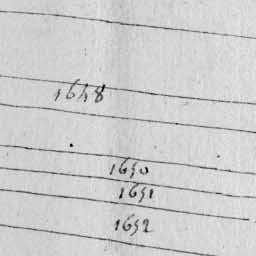 1648
1650
1651
1652